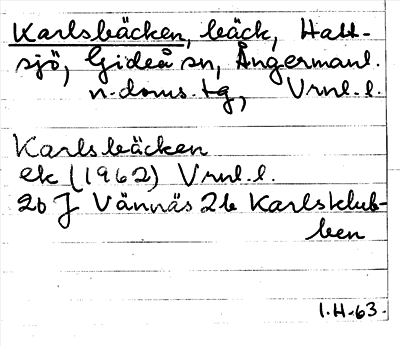 Karlsbäcken, bäck, Hatt-
sjö, Gideå sn, Ångermanl.
n. doms. tg, Vrnl. l.
Karlsbäcken
ek (1962) Vrnl. l.
20 J Vännäs 2b Karlsklub-
ben
I.H-63.